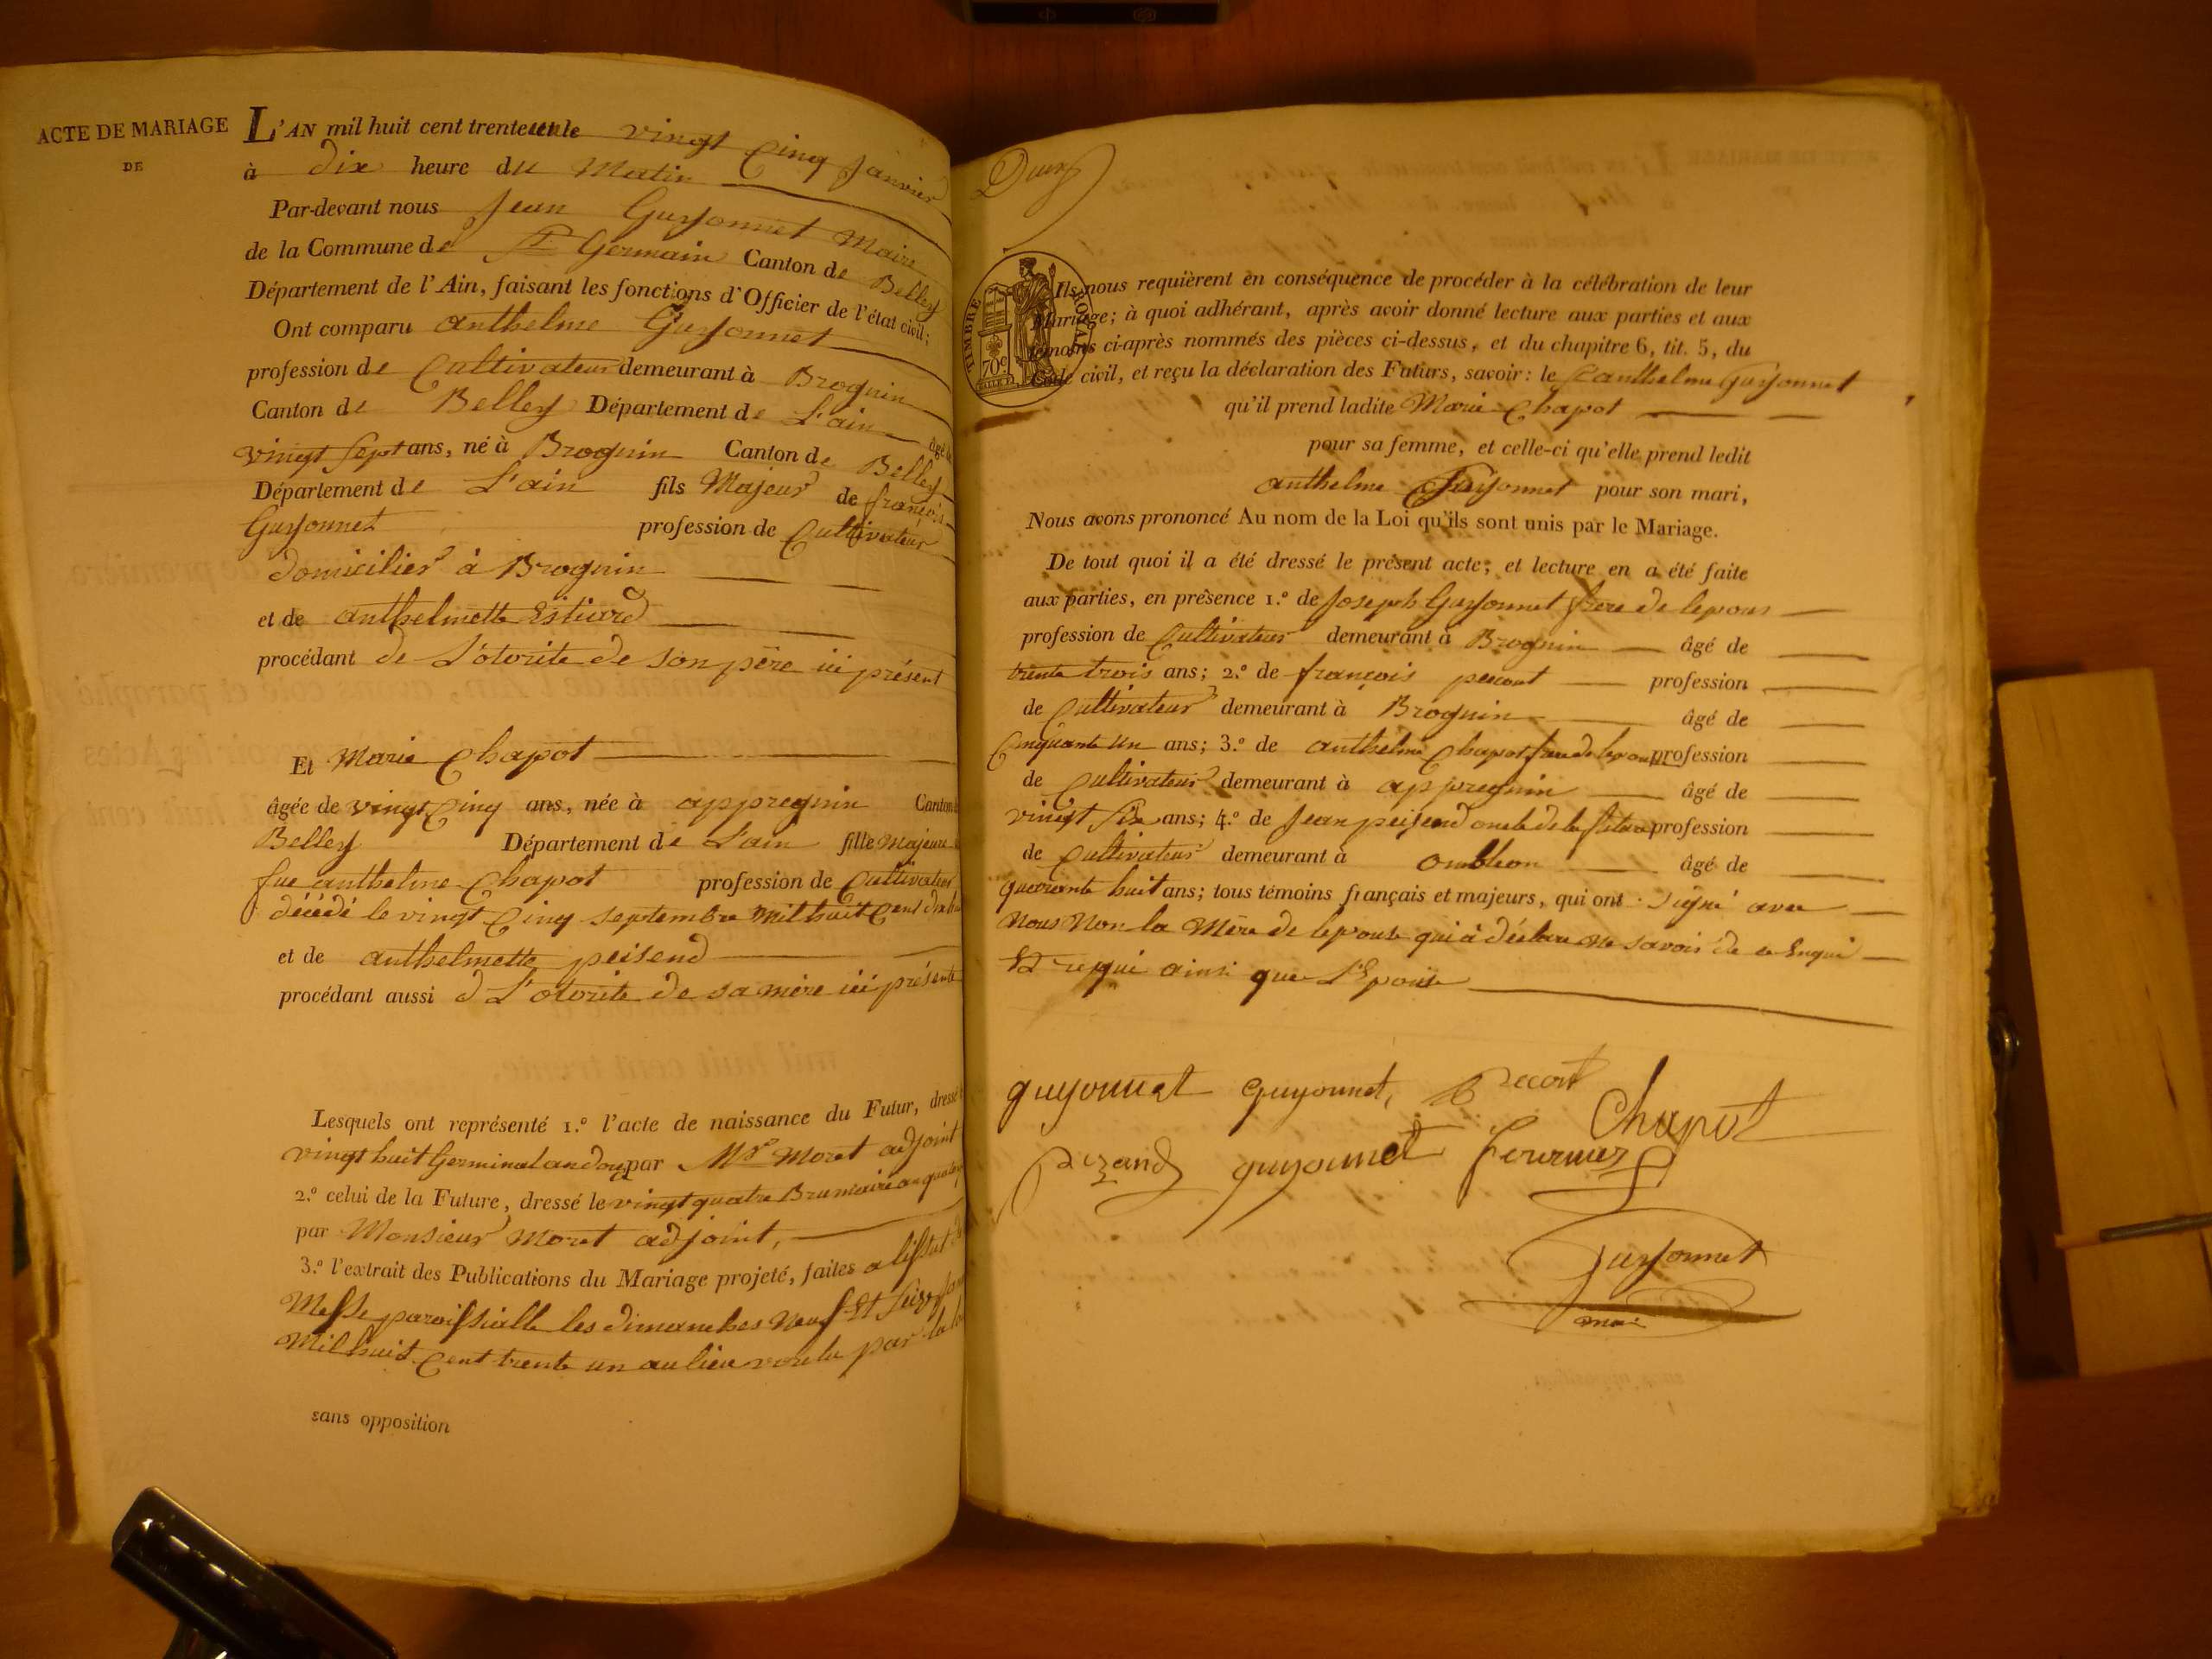 ACTE DE MARIAGE
DE
L'AN mil huit cent trente un le vingt Cinq Janvier
à dix heure du Matin
Par-devant nous Jean Guyonnet Maire
de la Commune de St Germain Canton de Belley
Département de l'Ain, faisant les fonctions d'Officier de l'état civil;
Ont comparu anthelme Guyonnet
profession de Cultivateur demeurant à Brognin
Canton de Belley Département de L'ain âgé de
vingt sept ans, né à Brognin Canton de Belley
Département de L'ain fils Majeur de françois
Guyonnet profession de Cultivateur
domicilier à Brognin
et de anthelmette Estiard
procédant de L'otorite de son père ici présent
Et Marie Chapot
âgée de vingt Cinq ans, née à appregnin Canton de
Belley Département de L'ain fille Majeure de
fue anthelme Chapot profession de Cultivateur
décédé le vingt Cinq septembre mil huit Cent
et de anthelmette peisend
procédant aussi d L'otorite de sa mère ici présente
Lesquels ont représenté 1.º l'acte de naissance du Futur, dressé
vingt huit Germinal an douze par Mr Moret adjoint
2.º celui de la Future, dressé le vingt quatre Brumaire an
par Monsieur Moret adjoint,
3.º l'extrait des Publications du Mariage projeté, faites a
Messe paroissialle les dimanches Neuf Et Seize
Mil huit Cent trente un au lieu voulu par la loi
sans opposition
Deux
TIMBRE ROYAL
70 c
Ils nous requièrent en conséquence de procéder à la célébration de leur
Mariage; à quoi adhérant, après avoir donné lecture aux parties et aux
témoins ci-après nommés des pièces ci-dessus, et du chapitre 6, tit. 5, du
Code civil, et reçu la déclaration des Futurs, savoir: le anthelme Guyonnet
qu'il prend ladite Marie Chapot
pour sa femme, et celle-ci qu'elle prend ledit
anthelme Guyonnet pour son mari,
Nous avons prononcé Au nom de la Loi qu'ils sont unis par le Mariage.
De tout quoi il a été dressé le présent acte; et lecture en a été faite
aux parties, en présence 1.º de Joseph Guyonnet frere de lepous
profession de Cultivateur demeurant à Brognin âgé de
trente trois ans; 2.º de françois pecout profession
de Cultivateur demeurant à Brognin âgé de
Cinquante un ans; 3.º de anthelme Chapot frere de profession
de Cultivateur demeurant à appregnin âgé de
vingt Six ans; 4.º de Jean peisend oncle de la future profession
de Cultivateur demeurant à âgé de
quarante huit ans; tous témoins français et majeurs, qui ont signé avec
Nous Non la Mère de lepouse qui à déclaré ne savoir de ce Enqui
Et requi ainsi que L'Epouse
guyonnet guyonnet, Pecout
Chapot
guyonnet fournier
Guyonnet